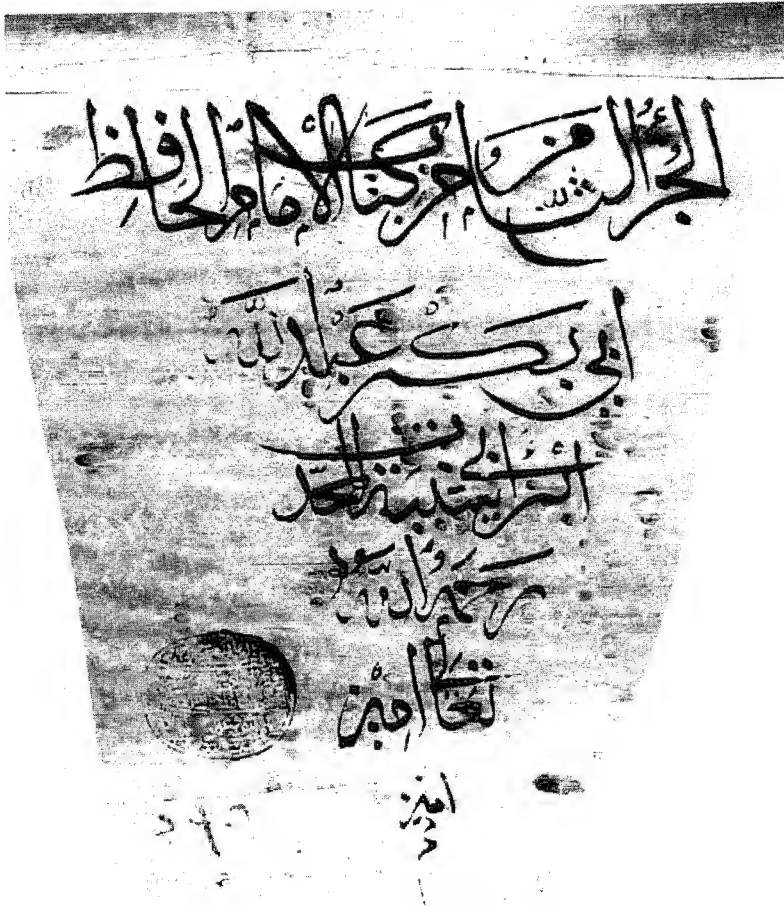 الجزء الثامن واخر كتاب الامام الحافظ
ابي بكر عبد الله
ابن ابي شيبة المحدث
رحمه الله
تعالى امين
امين